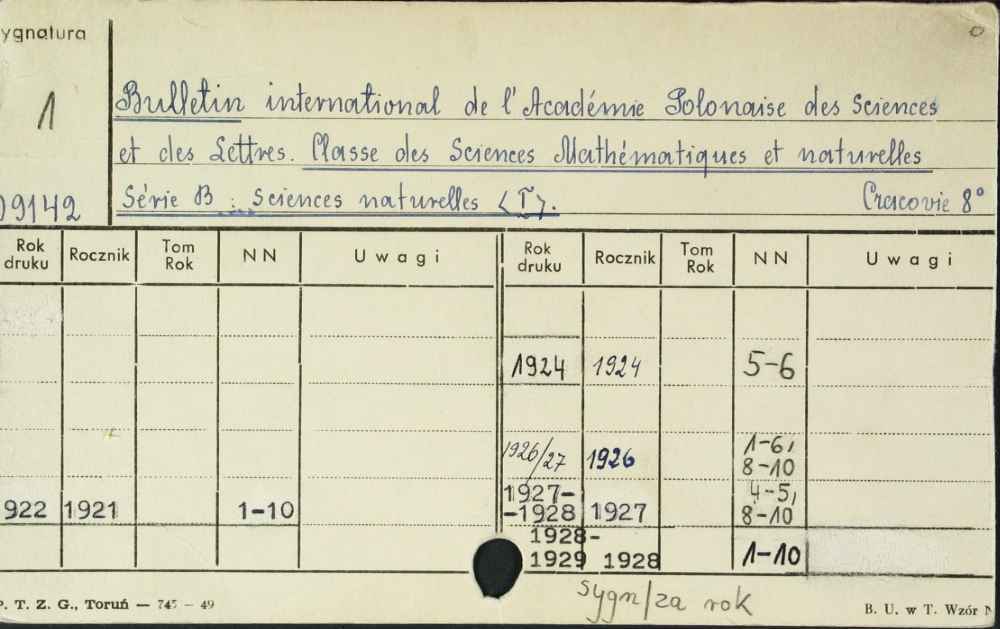 ygnatura
1
Bulletin international de l'Académie Polonaise des Sciences
et des Lettres. Classe des Sciences Mathématiques et naturelles
09142 Série B : Sciences naturelles <T>. Cracovie 8°
Rok druku Rocznik Tom Rok NN Uwagi Rok druku Rocznik Tom Rok NN Uwagi
1924 1924 5-6
1926/27 1926 1-6, 8-10
922 1921 1-10 1927-
-1928 1927 4-5, 8-10
1928-
1929 1928 1-10
sygn/za rok
P. T. Z. G., Toruń — 745 — 49 B. U. w T. Wzór N